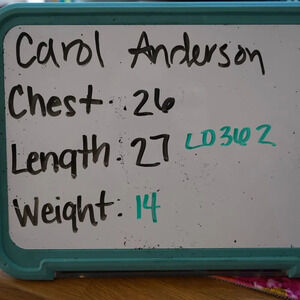 Carol Anderson
Chest. 26
Length. 27 LD362
Weight. 14